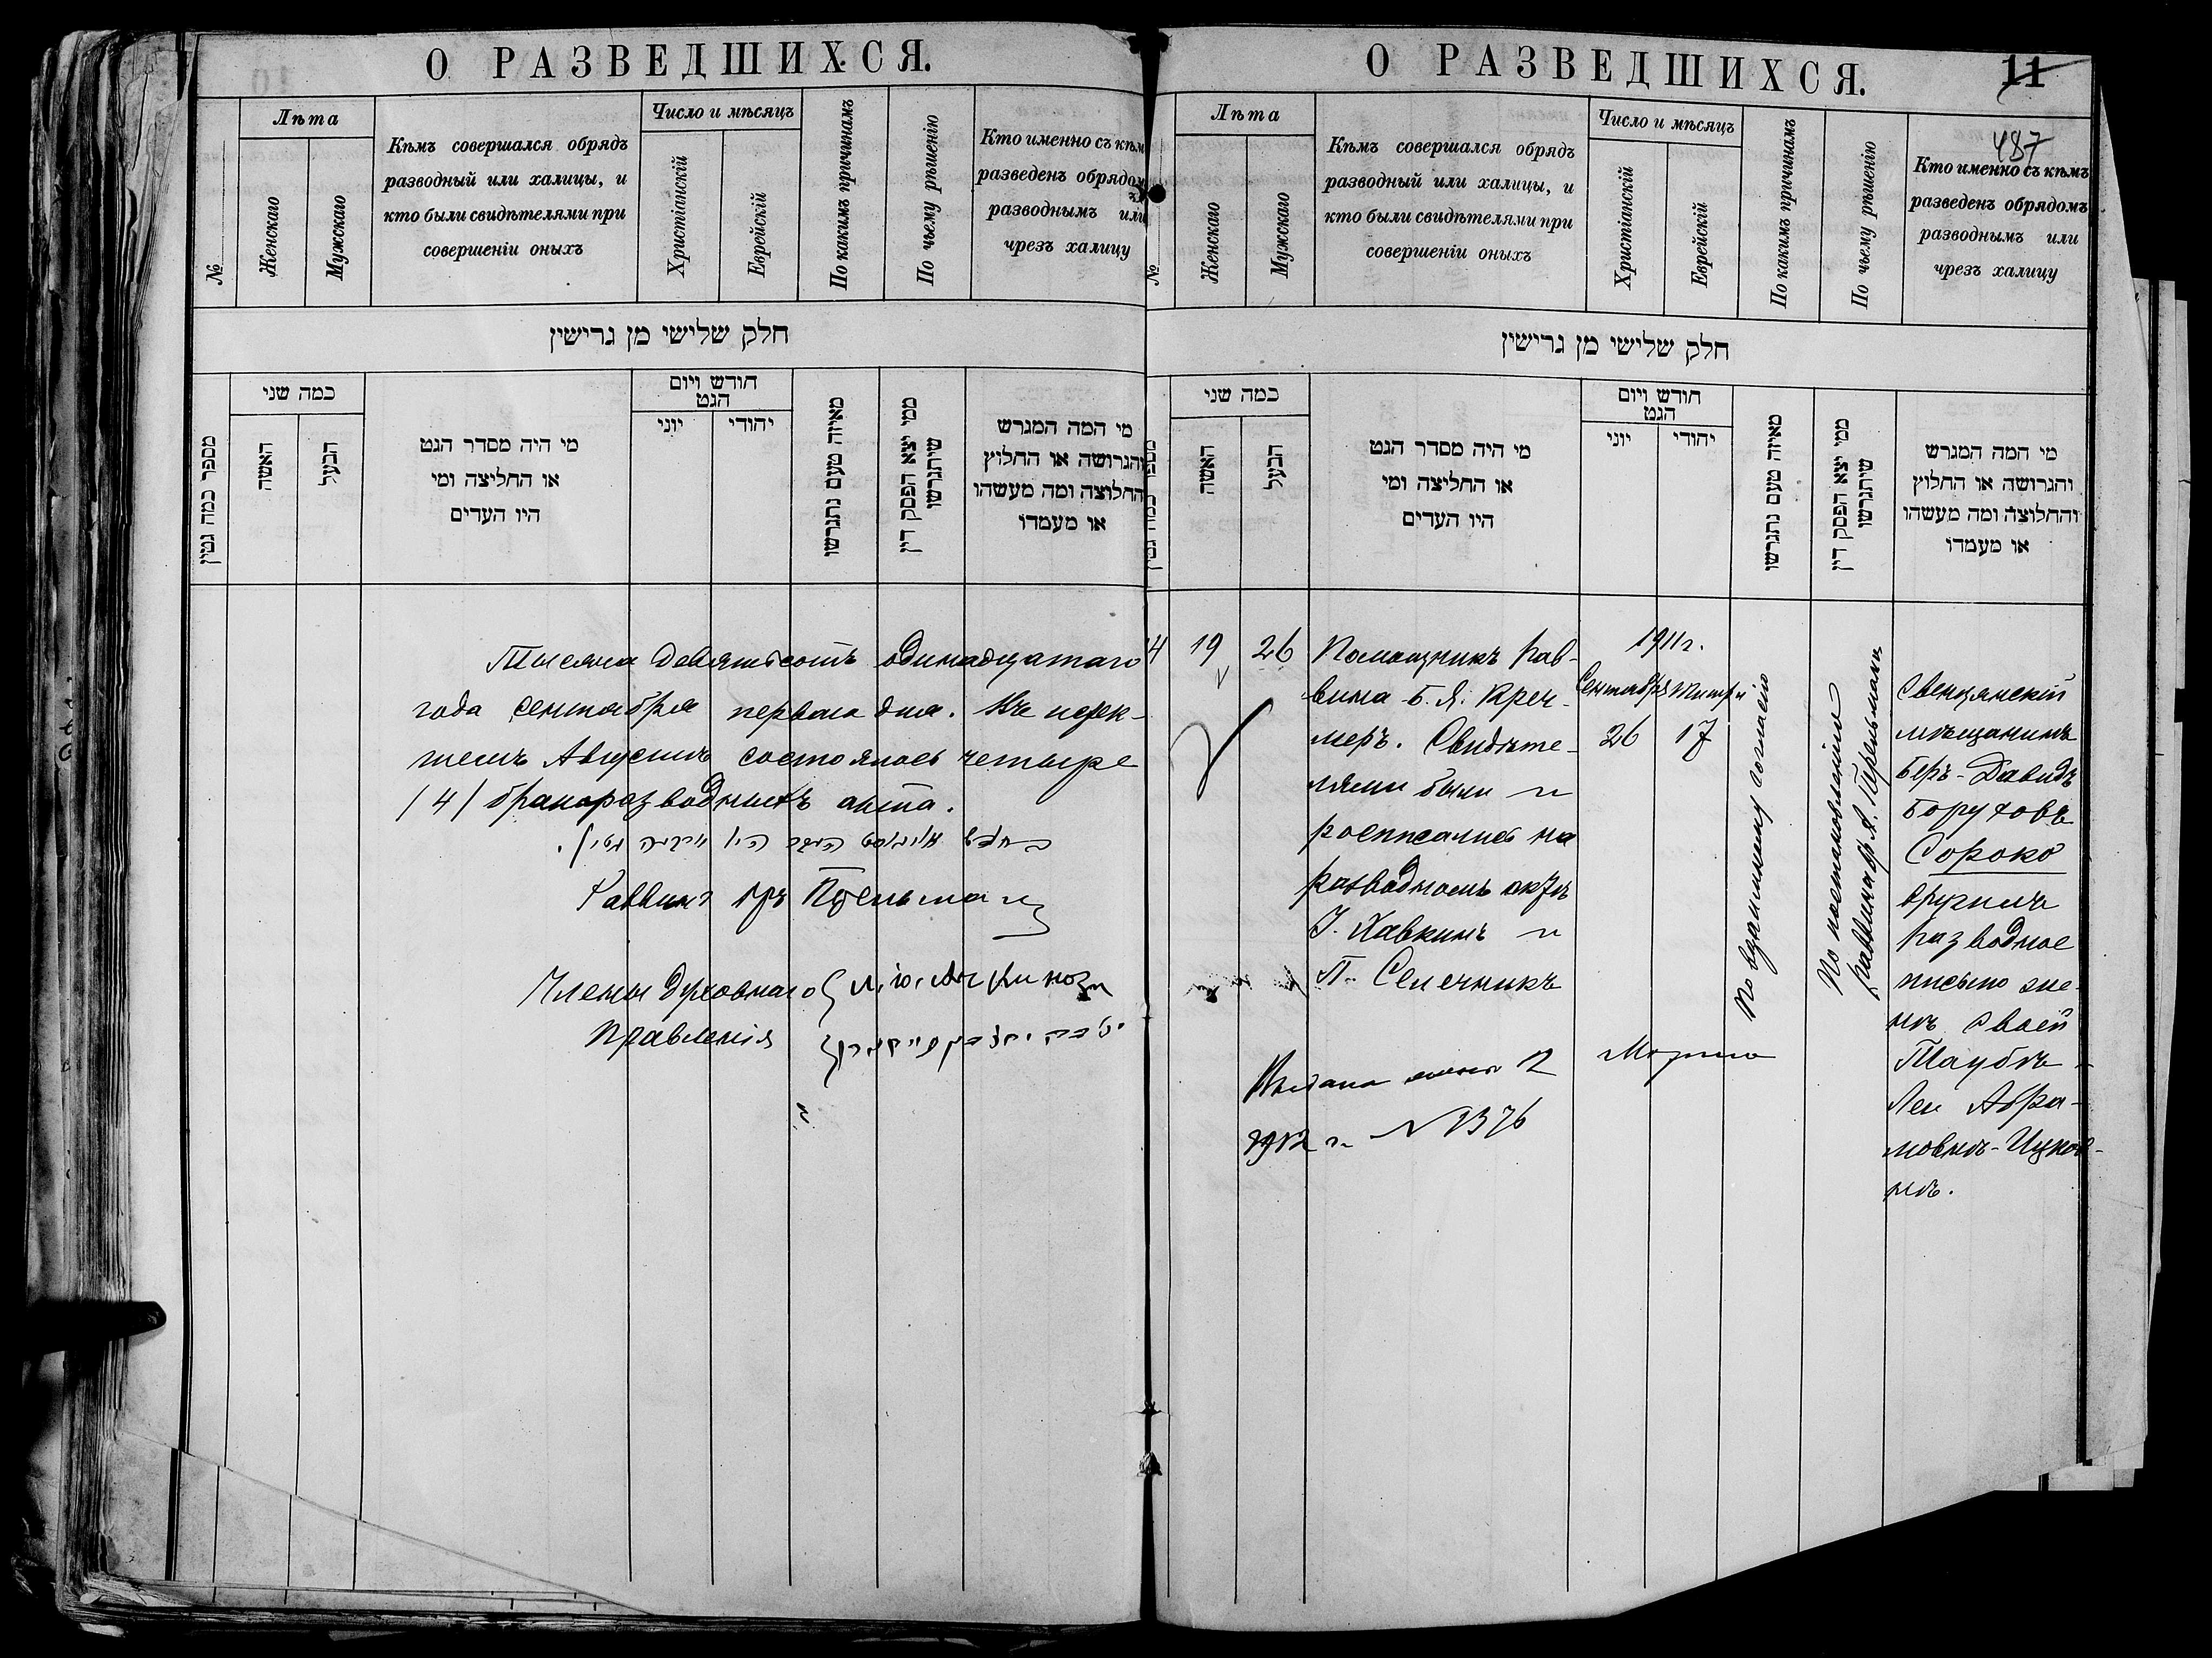 О РАЗВЕДШИХСЯ.
№
Лѣта
Женскаго
Мужскаго
Кѣмъ совершался обрядъ
разводный или халицы, и
кто были свидѣтелями при
совершеніи оныхъ
Число и мѣсяцъ
Христіанскій
Еврейскій
По какимъ причинамъ
По чьему рѣшенію
Кто именно съ кѣмъ
разведенъ обрядомъ
разводнымъ или
чрезъ халицу
חלק שלישי מן גרישין
מספר כמה גטין
כמה שני
האשה
הבעל
מי היה מסדר הגט
או החליצה ומי
היו העדים
חודש ויום
הגט
יוני
יהודי
מאיזה טעם נתגרשו
ממי יצא הפסק דין
שיתגרשו
מי המה המגרש
והגרושה או החלוץ
והחלוצה ומה מעשהו
או מעמדו
Тысяча девятьсотъ одинадцатаго
года сентября перваго дня. Въ истек-
шемъ Августѣ состоялось четыре
/4/ бракоразводныхъ акта.
Раввинъ
Члены Духовнаго
Правленія
О РАЗВЕДШИХСЯ.
11
487
№
Лѣта
Женскаго
Мужскаго
Кѣмъ совершался обрядъ
разводный или халицы, и
кто были свидѣтелями при
совершеніи оныхъ
Число и мѣсяцъ
Христіанскій
Еврейскій
По какимъ причинамъ
По чьему рѣшенію
Кто именно съ кѣмъ
разведенъ обрядомъ
разводнымъ или
чрезъ халицу
חלק שלישי מן גרישין
כמה שני
האשה
הבעל
מי היה מסדר הגט
או החליצה ומי
היו העדים
חודש ויום
הגט
יוני
יהודי
מאיזה טעם נתגרשו
ממי יצא הפסק דין
שיתגרשו
מי המה המגרש
והגרושה או החלוץ
והחלוצה ומה מעשהו
או מעמדו
4
19
26
Помощникъ Рав-
вина Б. Я. Креч-
меръ. Свидѣте-
лями были и
росписались на
разводномъ актѣ
І. Хавкинъ и
П. Селечникъ
1911 г.
Сентября Тишри
26 17
По взаимному согласію
По постановленію
Раввина Ф. А. Перельмана
Свенцянскій
мѣщанинъ
Беръ-Давидъ
Боруховъ
Сороко
вручилъ
разводное
письмо же-
нѣ своей
Таубѣ-
Леи Абра-
мовнѣ-Ицков-
нѣ.
Выдана 12 Марта
1912 г. № 1376